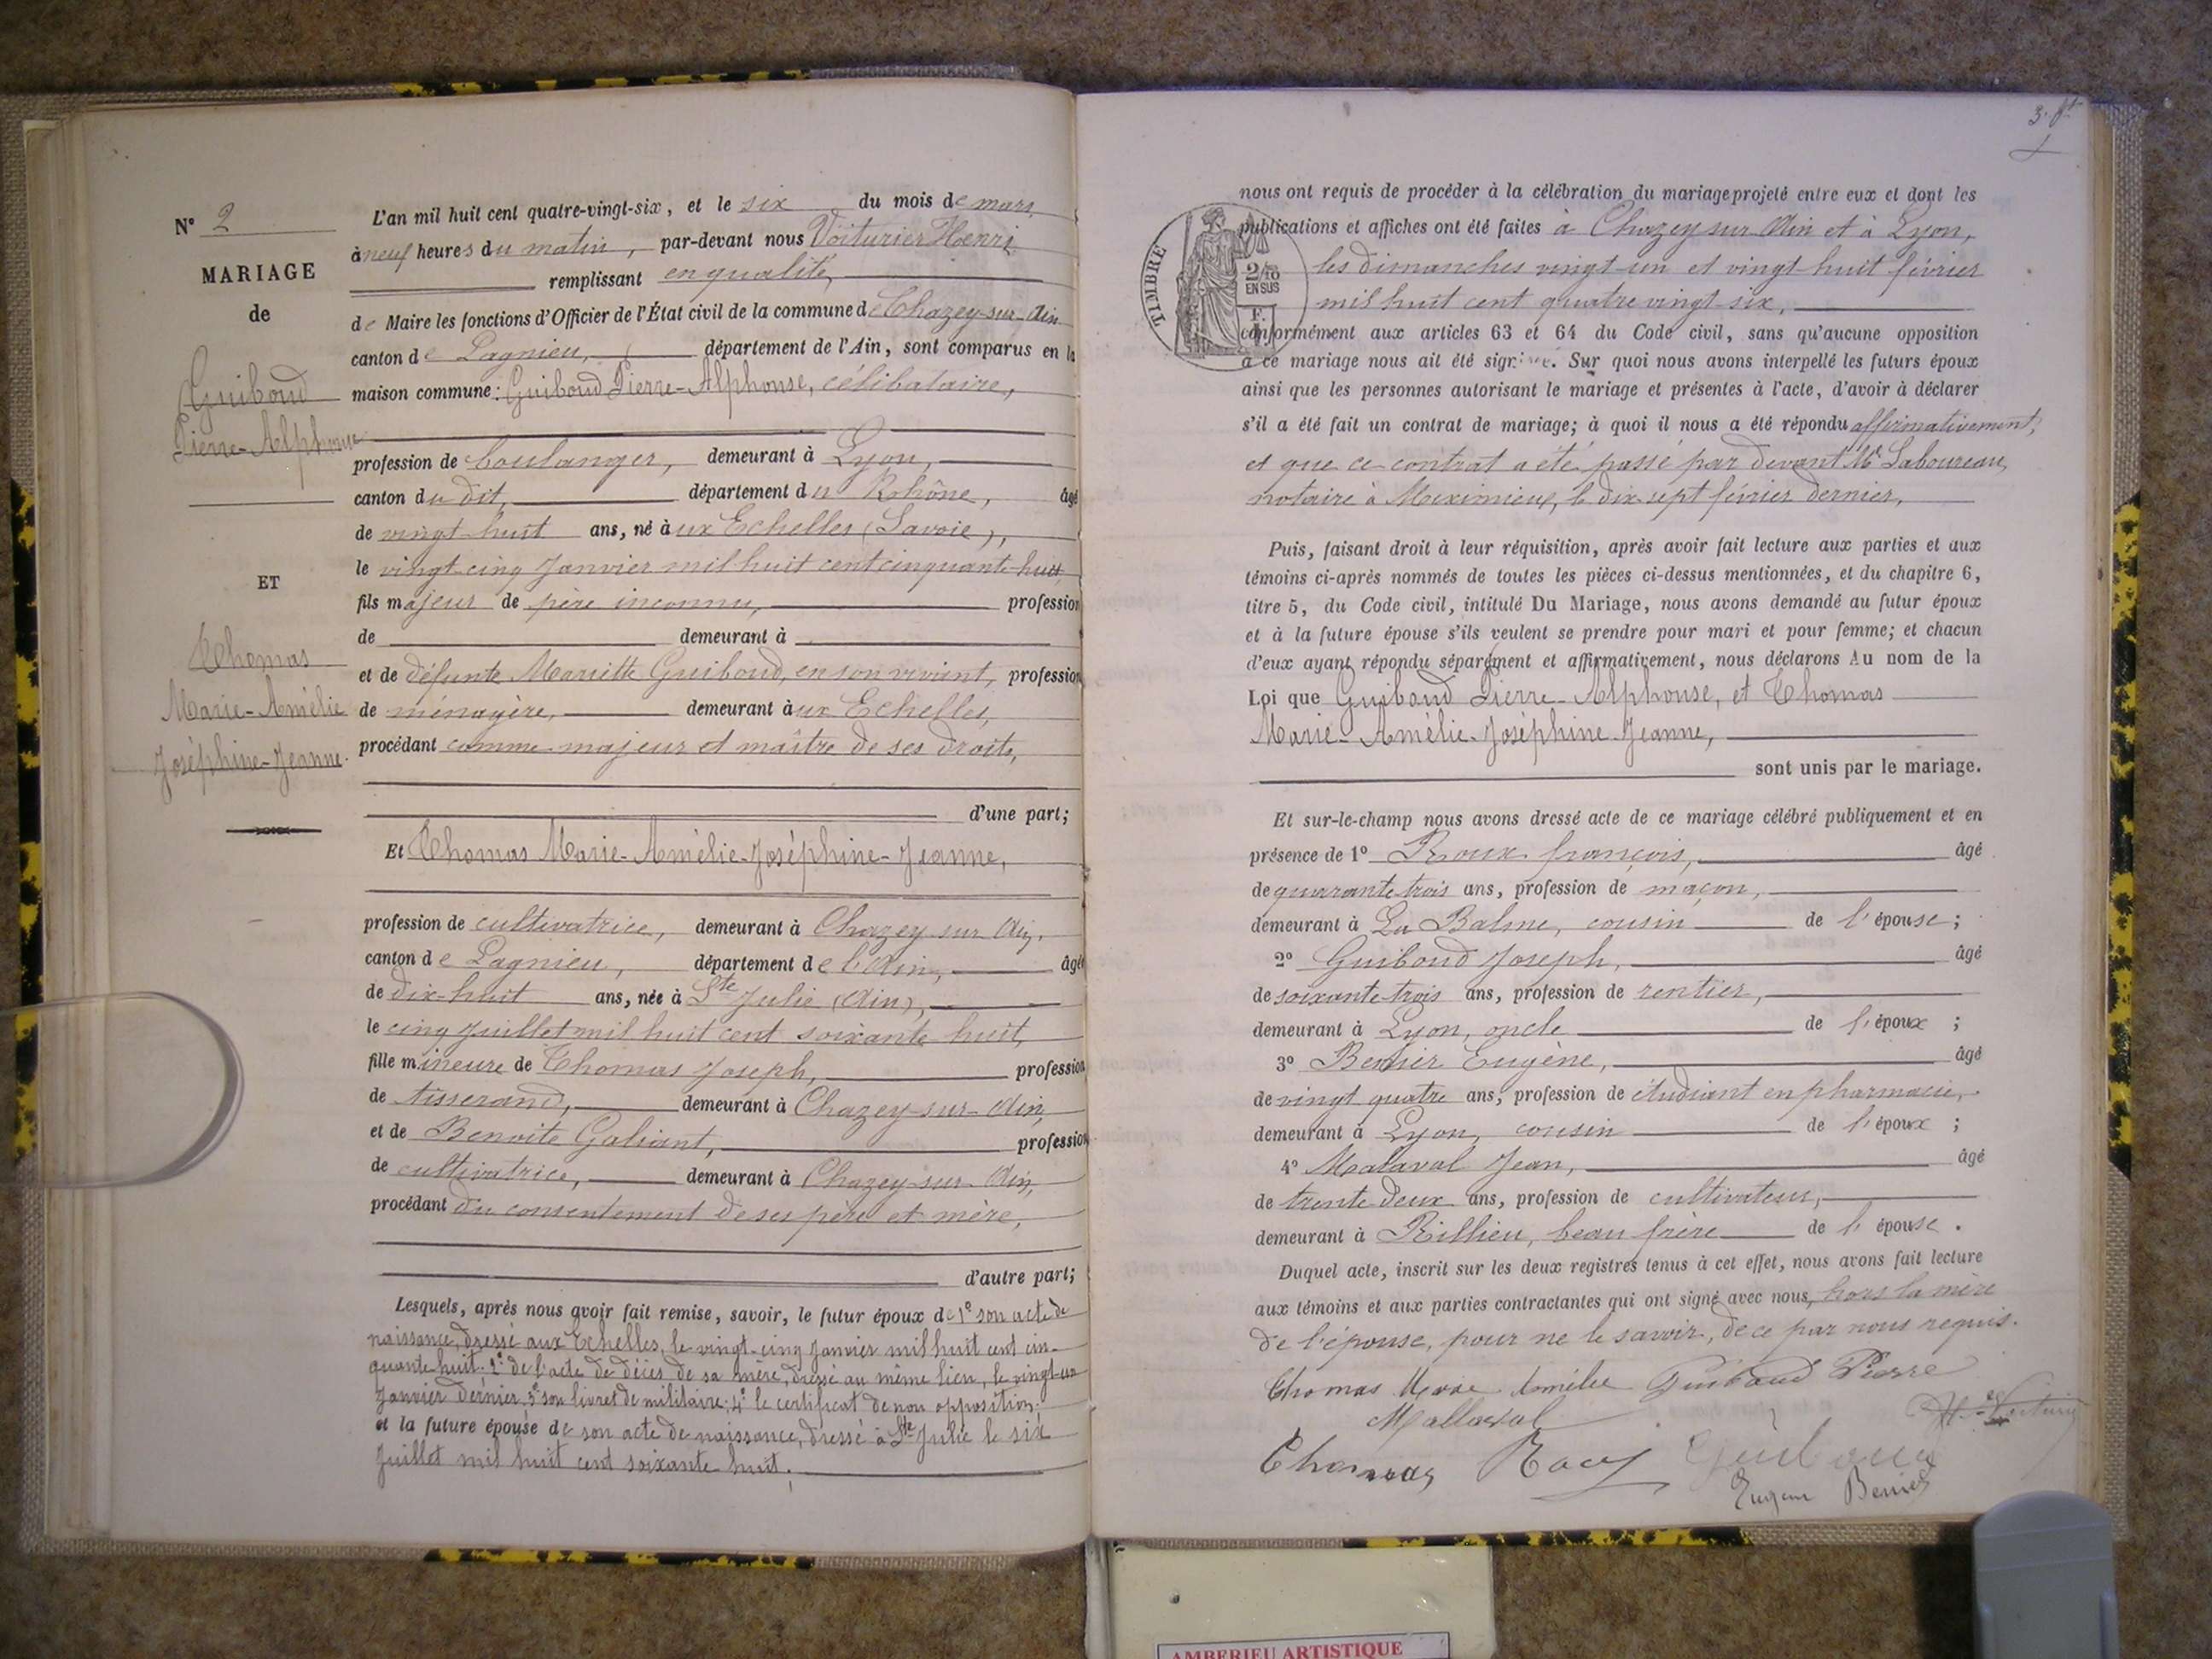 N° 2
MARIAGE
de
Guiboud
Pierre-Alphonse
ET
Thomas
Marie-Amélie
Joséphine-Jeanne.
L'an mil huit cent quatre-vingt-six, et le six du mois de mars
à neuf heures du matin, par-devant nous Voiturier Henri
remplissant en qualité
de Maire les fonctions d'Officier de l'État civil de la commune de Chazey-sur-Ain
canton de Lagnieu, département de l'Ain, sont comparus en la
maison commune: Guiboud Pierre-Alphonse, célibataire,
profession de boulanger, demeurant à Lyon,
canton du dit, département du Rohône, âgé
de vingt-huit ans, né à ux Echelles (Savoie),
le vingt-cinq Janvier mil huit cent cinquante-huit
fils majeur de père inconnu, profession
de demeurant à
et de défunte Mariette Guiboud, en son vivant, profession
de ménagère, demeurant à ux Echelles,
procédant comme majeur et maître de ses droits,
d'une part;
Et Thomas Marie-Amélie-Joséphine-Jeanne,
profession de cultivatrice, demeurant à Chazey-sur-Ain,
canton de Lagnieu, département de l'Ain, âgée
de dix-huit ans, née à Ste Julie (Ain),
le cinq Juillet mil huit cent soixante huit,
fille mineure de Thomas Joseph, profession
de tisserand, demeurant à Chazey-sur-Ain,
et de Benoite Galiant, profession
de cultivatrice, demeurant à Chazey-sur-Ain,
procédant du consentement de ses père et mère,
d'autre part;
Lesquels, après nous avoir fait remise, savoir, le futur époux de 1° son acte de
naissance, dressé aux Echelles, le vingt-cinq Janvier mil huit cent cin-
quante huit. 2° de l'acte de décès de sa mère, dressé au même lieu, le vingt-un
Janvier dernier. 3° son livret de militaire; 4° le certificat de non opposition.
et la future épouse de son acte de naissance, dressé à Ste Julie le six
Juillet mil huit cent soixante huit.
3. ft
nous ont requis de procéder à la célébration du mariage projeté entre eux et dont les
publications et affiches ont été faites à Chazey sur Ain et à Lyon,
les dimanches vingt-un et vingt-huit février
mil huit cent quatre vingt-six,
TIMBRE
2/10
EN SUS
F.
conformément aux articles 63 et 64 du Code civil, sans qu'aucune opposition
à ce mariage nous ait été signifiée. Sur quoi nous avons interpellé les futurs époux
ainsi que les personnes autorisant le mariage et présentes à l'acte, d'avoir à déclarer
s'il a été fait un contrat de mariage; à quoi il nous a été répondu affirmativement,
et que ce contrat a été passé par devant Me Laboureau,
notaire à Meximieux, le dix-sept février dernier,
Puis, faisant droit à leur réquisition, après avoir fait lecture aux parties et aux
témoins ci-après nommés de toutes les pièces ci-dessus mentionnées, et du chapitre 6,
titre 5, du Code civil, intitulé Du Mariage, nous avons demandé au futur époux
et à la future épouse s'ils veulent se prendre pour mari et pour femme; et chacun
d'eux ayant répondu séparément et affirmativement, nous déclarons Au nom de la
Loi que Guiboud Pierre-Alphonse, et Thomas
Marie-Amélie-Joséphine-Jeanne,
sont unis par le mariage.
Et sur-le-champ nous avons dressé acte de ce mariage célébré publiquement et en
présence de 1° Roux françois, âgé
de quarante trois ans, profession de maçon,
demeurant à La Balme, cousin de l'épouse;
2° Guiboud Joseph, âgé
de soixante-trois ans, profession de rentier,
demeurant à Lyon, oncle de l'époux;
3° Bernier Eugène, âgé
de vingt quatre ans, profession de étudiant en pharmacie,
demeurant à Lyon, cousin de l'époux;
4° Malaval Jean, âgé
de trente deux ans, profession de cultivateur,
demeurant à Rillieu, beau frère de l'épouse.
Duquel acte, inscrit sur les deux registres tenus à cet effet, nous avons fait lecture
aux témoins et aux parties contractantes qui ont signé avec nous, hors la mère
de l'épouse, pour ne le savoir, de ce par nous requis.
Thomas Marie Amélie Guiboud Pierre
Mallaval
Thomas Roux Guiboud
Eugene Bernier
AMBERIEU ARTISTIQUE